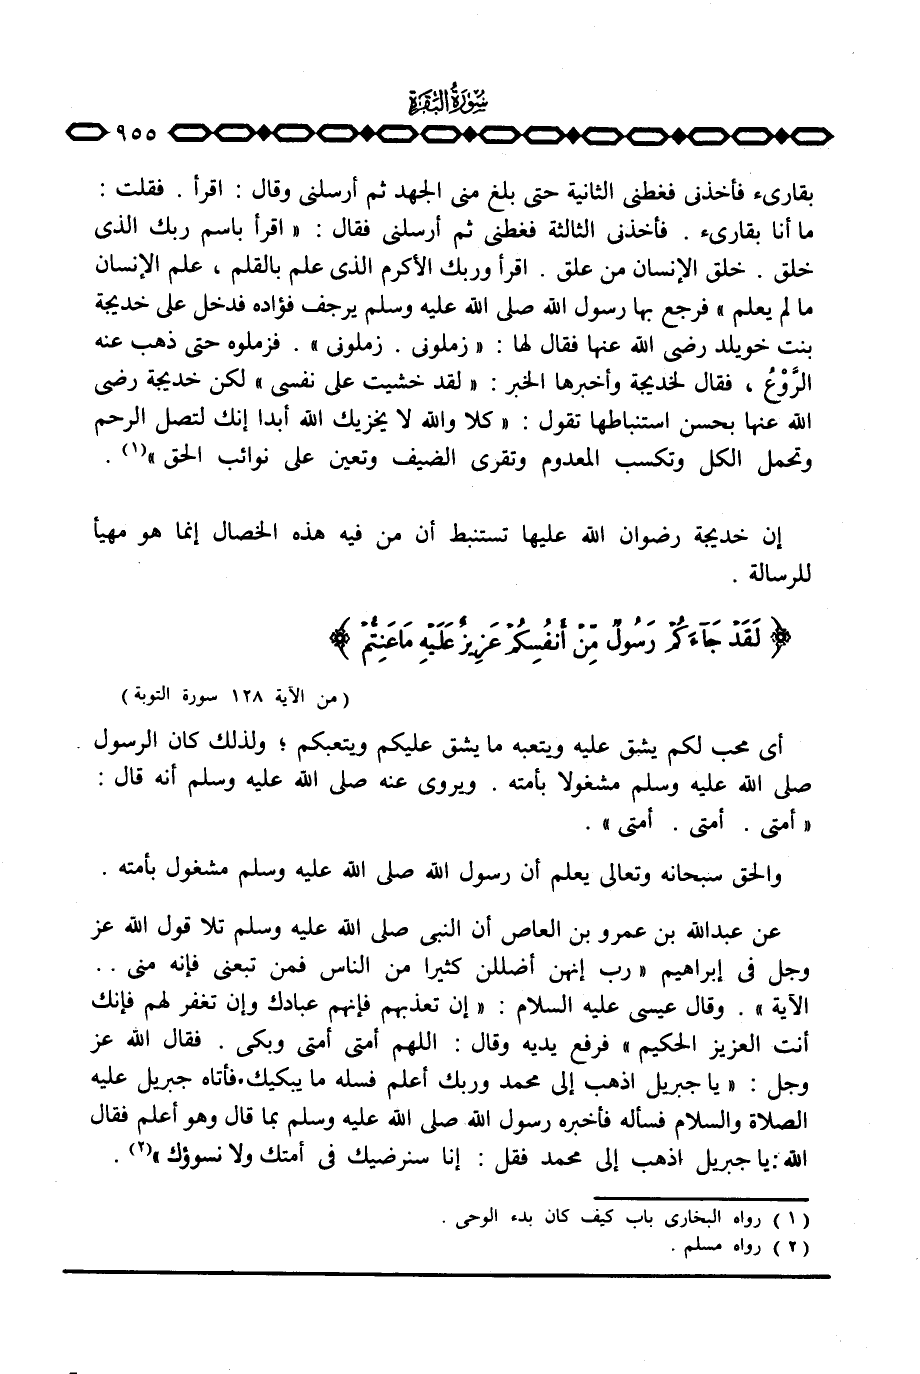 سُورَةُ الْبَقَرَةِ
٩٥٥
بقارىء فأخذنى فغطنى الثانية حتى بلغ منى الجهد ثم أرسلنى وقال : اقرأ . فقلت :
ما أنا بقارىء . فأخذنى الثالثة فغطنى ثم أرسلنى فقال : « اقرأ باسم ربك الذى
خلق . خلق الإنسان من علق . اقرأ وربك الأكرم الذى علم بالقلم ، علم الإنسان
ما لم يعلم » فرجع بها رسول الله صلى الله عليه وسلم يرجف فؤاده فدخل على خديجة
بنت خويلد رضى الله عنها فقال لها : « زملونى . زملونى » . فزملوه حتى ذهب عنه
الرَّوْعُ ، فقال لخديجة وأخبرها الخبر : « لقد خشيت على نفسى » لكن خديجة رضى
الله عنها بحسن استنباطها تقول : « كلا والله لا يخزيك الله أبدا إنك لتصل الرحم
وتحمل الكل وتكسب المعدوم وتقرى الضيف وتعين على نوائب الحق »(١) .
إن خديجة رضوان الله عليها تستنبط أن من فيه هذه الخصال إنما هو مهيأ
للرسالة .
﴿ لَقَدْ جَآءَكُمْ رَسُولٌ مِّنْ أَنفُسِكُمْ عَزِيزٌ عَلَيْهِ مَاعَنِتُّمْ ﴾
( من الآية ١٢٨ سورة التوبة )
أى محب لكم يشق عليه ويتعبه ما يشق عليكم ويتعبكم ؛ ولذلك كان الرسول
صلى الله عليه وسلم مشغولا بأمته . ويروى عنه صلى الله عليه وسلم أنه قال :
« أمتى . أمتى . أمتى » .
والحق سبحانه وتعالى يعلم أن رسول الله صلى الله عليه وسلم مشغول بأمته .
عن عبدالله بن عمرو بن العاص أن النبى صلى الله عليه وسلم تلا قول الله عز
وجل فى إبراهيم « رب إنهن أضللن كثيرا من الناس فمن تبعنى فإنه منى . .
الآية » . وقال عيسى عليه السلام : « إن تعذبهم فإنهم عبادك وإن تغفر لهم فإنك
أنت العزيز الحكيم » فرفع يديه وقال : اللهم أمتى أمتى وبكى . فقال الله عز
وجل : « يا جبريل اذهب إلى محمد وربك أعلم فسله ما يبكيك.فأتاه جبريل عليه
الصلاة والسلام فسأله فأخبره رسول الله صلى الله عليه وسلم بما قال وهو أعلم فقال
الله : يا جبريل اذهب إلى محمد فقل : إنا سنرضيك فى أمتك ولا نسوؤك »(٢) .
( ١ ) رواه البخارى باب كيف كان بدء الوحى .
( ٢ ) رواه مسلم .